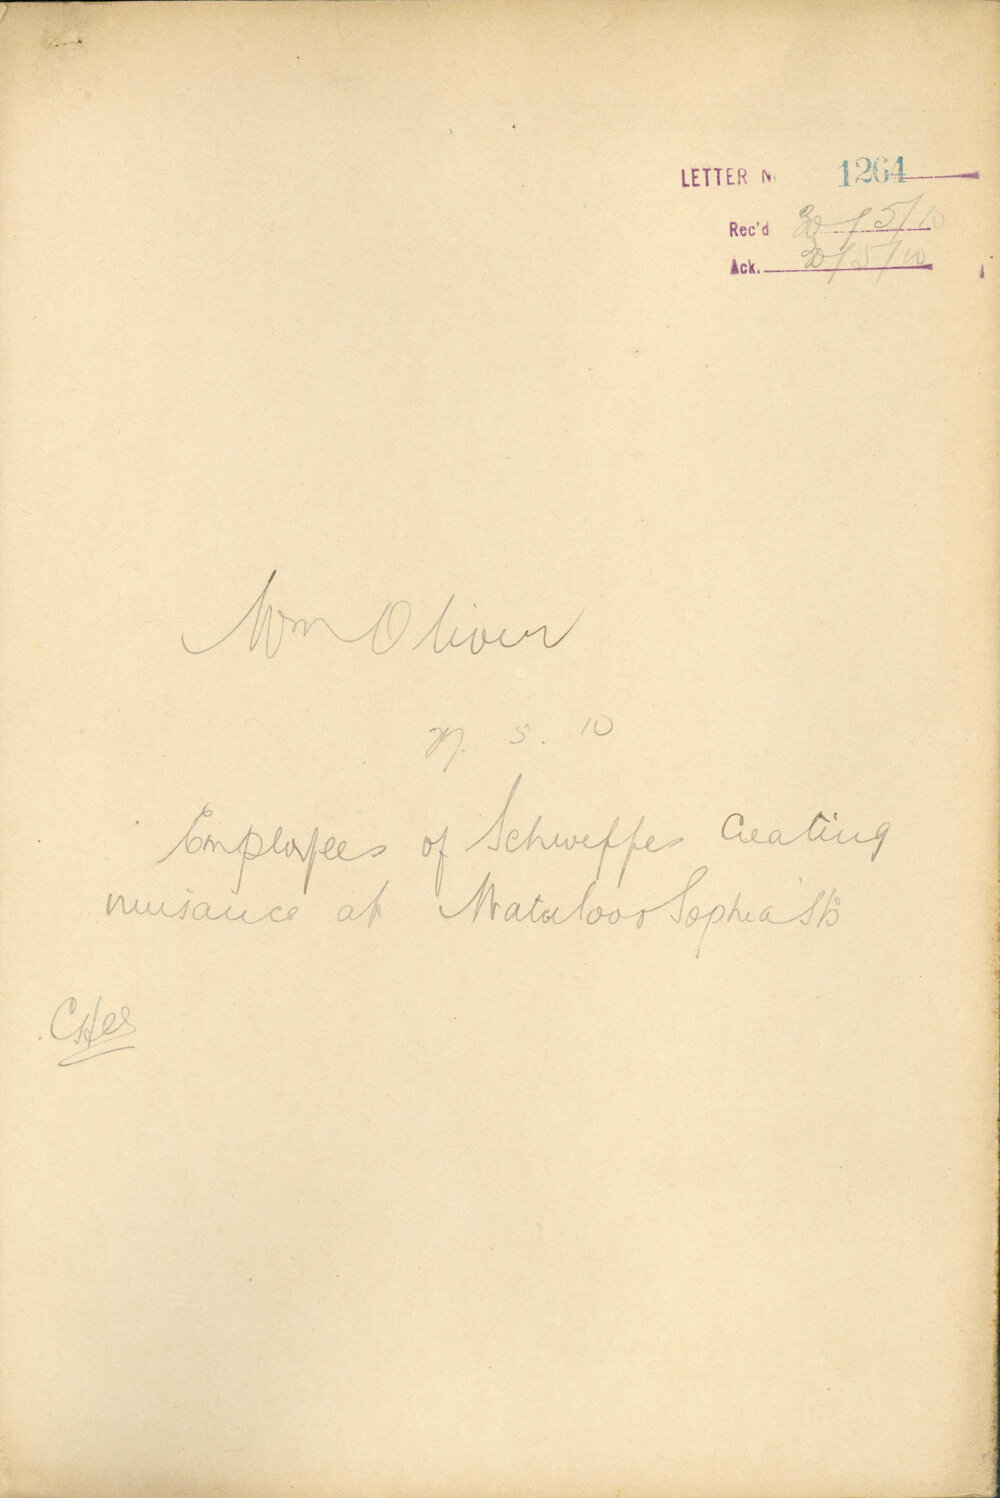 LETTER N. 1264
Rec'd 30/5/10
Ack. 30/5/10
Wm Oliver
5. 10
Employees of Schweppes Creating
nuisance at Waterloo & Sophia Sts